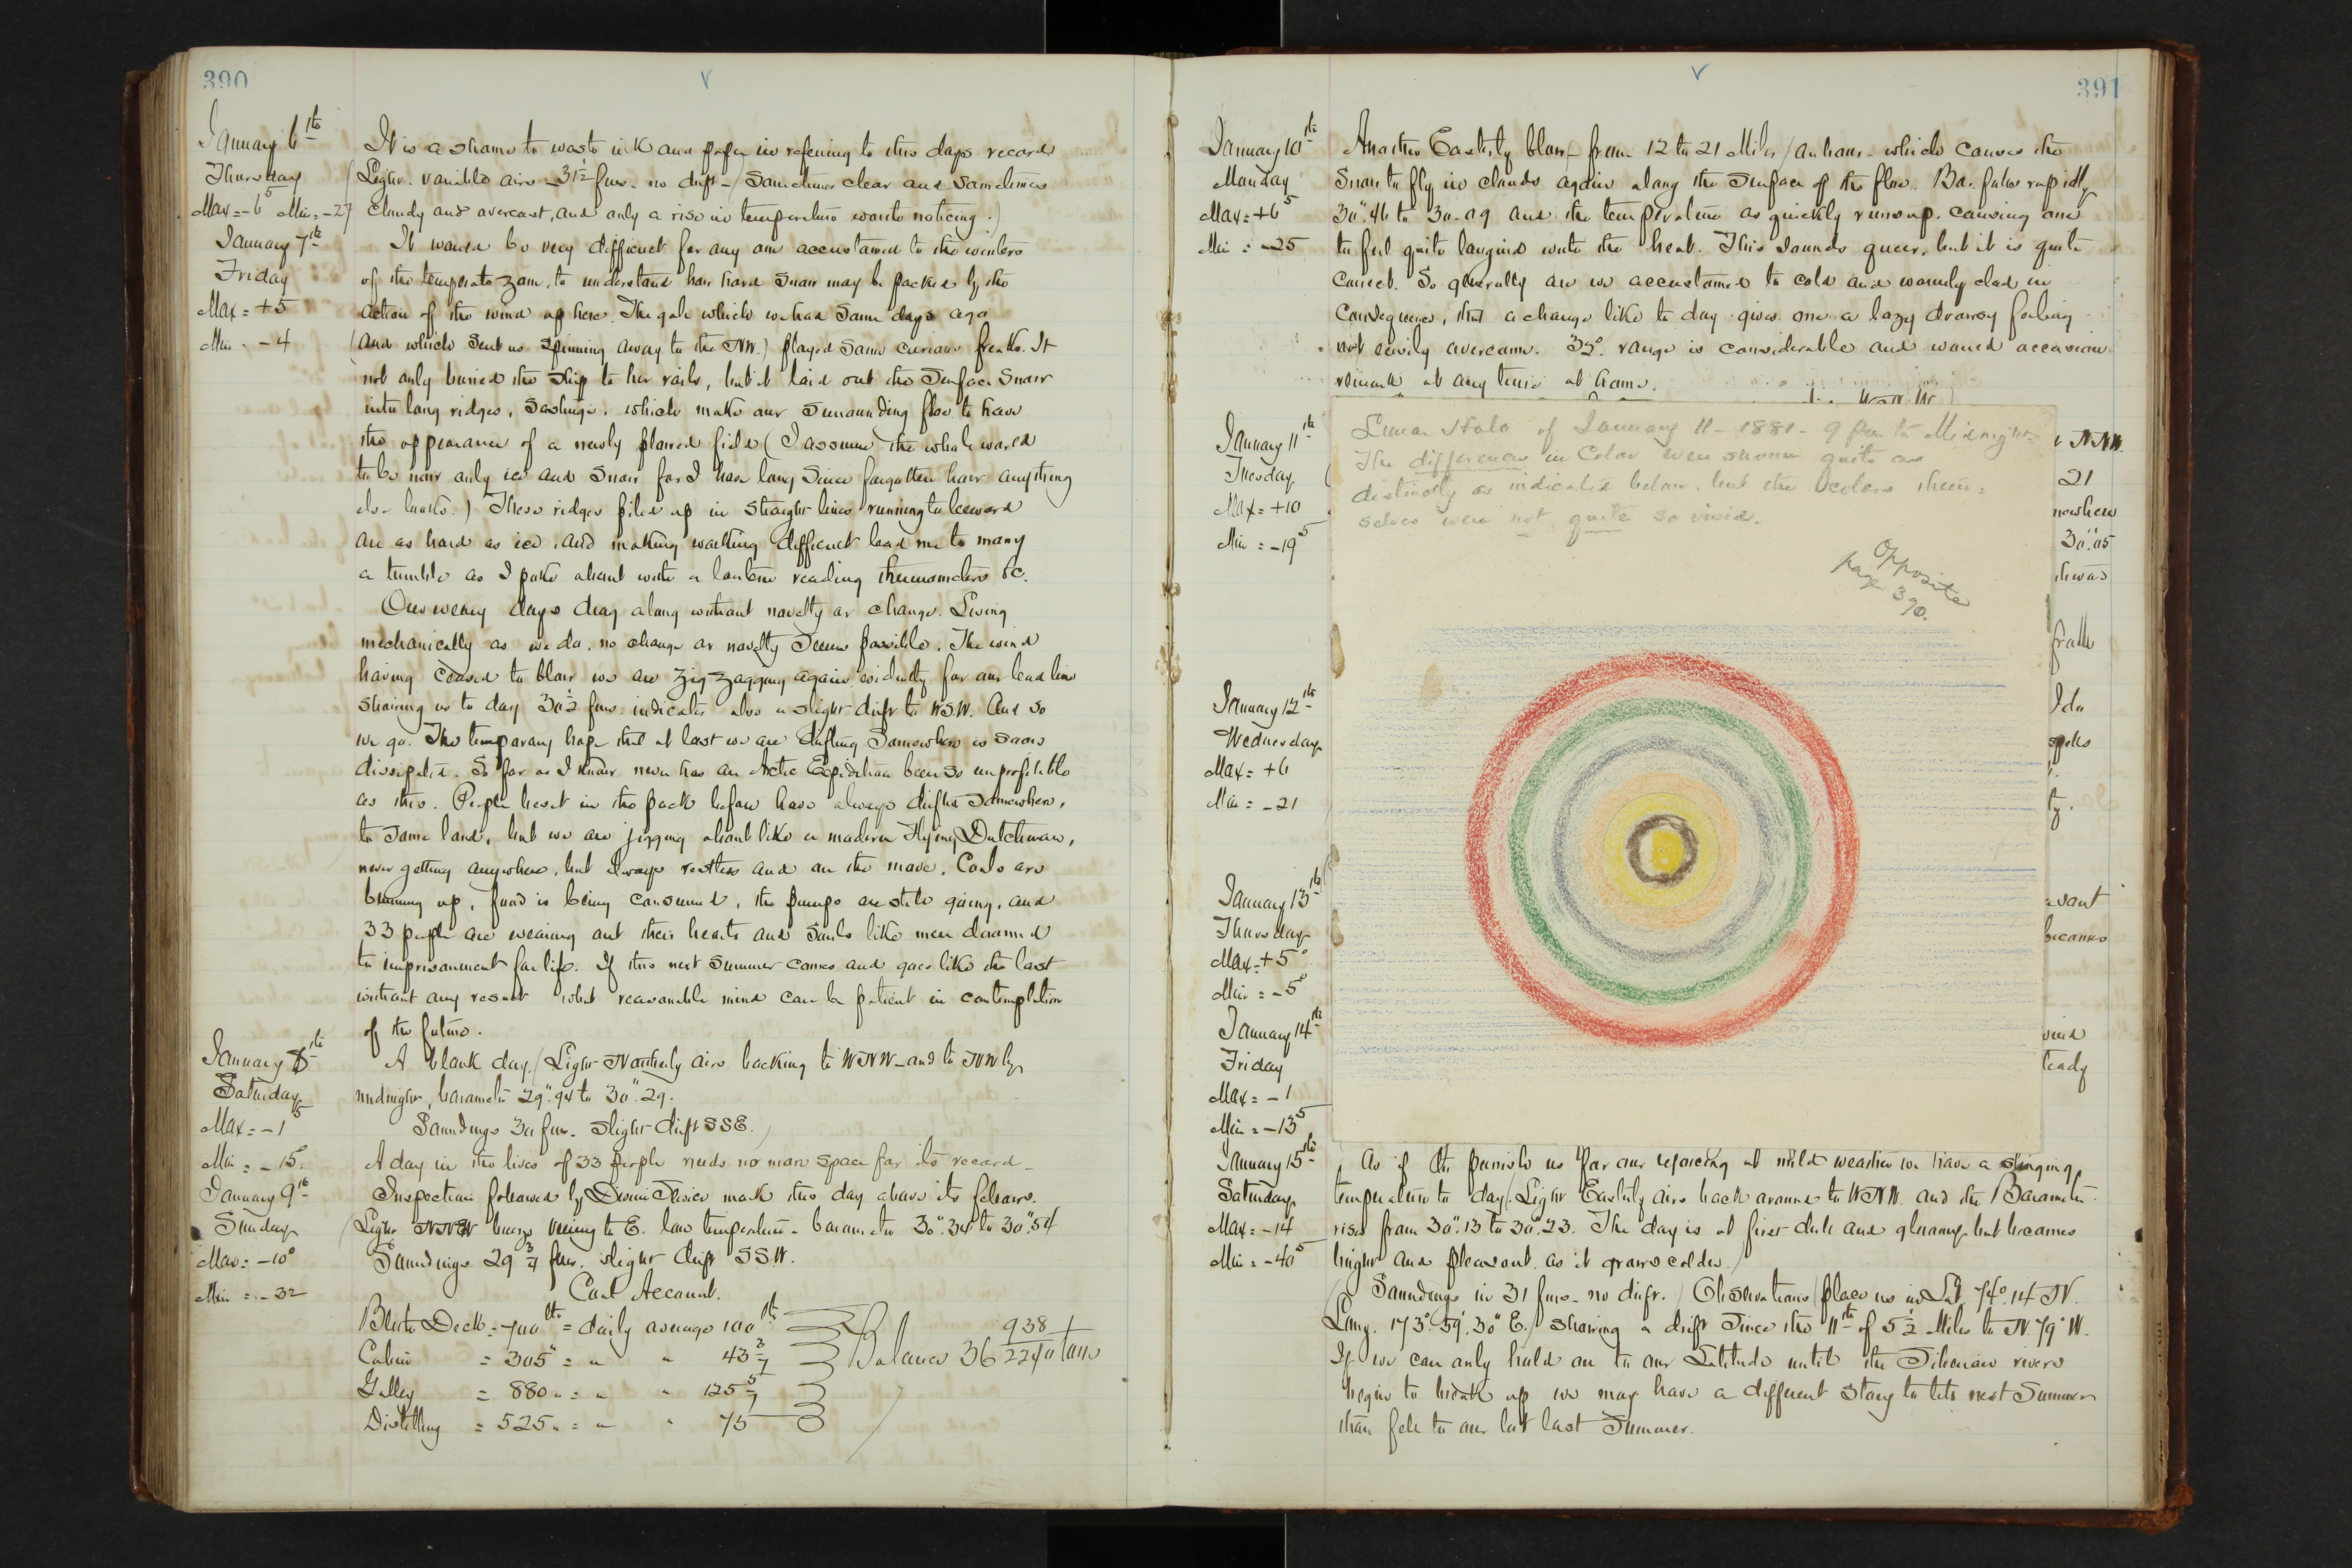 390
January 6th
Thursday
Max = -6° Min = -27
It is a shame to waste ink and paper in refering to this days record
(Light variable airs - 31½ fms - no drift -) Sometimes clear and sometimes
cloudy and overcast, and only a rise in temperature wants noticing.)
January 7th
Friday
Max = +5
Min = -4
It would be very difficult for any one accustomed to the winters
of the temperate zone, to understand how hard snow may be packed by the
action of the wind up here. The gale which we had some days ago
(and which sent us spinning away to the NW.) played some curious freaks. It
not only buried the ship to her rails, but it laid out the surface snow
into long ridges, Sastrugi, which make our surrounding floe to have
the appearance of a newly plowed field (I assume the whole world
to be now only ice and snow for I have long since forgotten how anything
else looks.) These ridges piled up in straight lines running to leeward
are as hard as ice, and making walking difficult lead me to many
a tumble as I poke about with a lantern reading thermometers &c.
Our weary days drag along without novelty or change. Living
mechanically as we do, no change or novelty seems possible. The wind
having ceased to blow we are zig zagging again evidently for our lead line
showing us to day 30½ fms. indicates also a slight drift to WSW. And so
we go. The temporary hope that at last we are drifting somewhere is soon
dissipated. So far as I know never has an Arctic Expedition been so unprofitable
as this. People beset in the pack before have always drifted somewhere,
to some land, but we are jogging about like a modern Flying Dutchman,
never getting anywhere, but always restless and on the move. Coals are
burning up, food is being consumed, the pumps are still going, and
33 people are wearing out their hearts and souls like men doomed
to imprisonment for life. If this next summer comes and goes like the last
without any result what reasonable mind can be patient in contemplation
of the future.
January 8th
Saturday
Max = -1⁵
Min = -15°
A blank day. (Light Northerly airs backing to WNW - and to NW by
midnight, barometer 29".94 to 30".29.
Soundings 30 fms. slight drift SSE.)
A day in the lives of 33 people needs no more space for its record -
January 9th
Sunday
Max = -10°
Min = -32
Inspection followed by Divine Service mark this day above its fellows.
(Light NNW veering to E. low temperature - barometer 30".34 to 30".54
Soundings 29¾ fms. slight drift SSW.
Coal Account.
Berth Deck = 700 lbs = daily average 100 lbs
Cabin = 305 " = " " 43 3/7
Galley = 880 " = " " 125 5/7
Distilling = 525 " = " " 75
Balance 36 938/2240 tons
391
January 10th
Monday
Max = +6⁵
Min = -25
Another Easterly blow - from 12 to 21 Miles / an hour - which causes the
snow to fly in clouds again along the surface of the floe. Bar. falls rapidly
30".46 to 30.09 and the temperature as quickly runs up, causing one
to feel quite languid with the heat. This sounds queer, but it is quite
correct. So generally are we accustomed to cold and warmly clad in
consequence, that a change like to day gives one a lazy drowsy feeling
not easily overcome. 32° range is considerable and would occasion
remark at any time at home.
January 11th
Tuesday
Max = +10
Min = -19⁵
Lunar Halo of January 11 - 1881 - 9 pm to Midnight
The differences in Color were shown quite as
distinctly as indicated below, but the colors them =
selves were not quite so vivid.
Opposite
page 390.
NNW.
21
30".05
January 12th
Wednesday
Max = +6
Min = -21
I do
January 13th
Thursday
Max = +5°
Min = -5°
becomes
January 14th
Friday
Max = -1
Min = -13⁵
January 15th
Saturday
Max = -14
Min = -40⁵
As if to punish us for our rejoicing at mild weather we have a stinging
temperature to day. (Light Easterly airs back around to WNW. and the Barometer
rises from 30".13 to 30".23. The day is at first dull and gloomy but becomes
bright and pleasant as it grows colder.)
(Soundings in 31 fms - no drift.) Observations place us in Lat 74° 14 N.
Long. 173° 59'. 30" E. / showing a drift since the 11th of 5½ Miles to N. 79° W.
If we can only hold on to our Latitude until the Siberian rivers
begin to break up we may have a different story to tell next Summer
than fell to our lot last Summer.